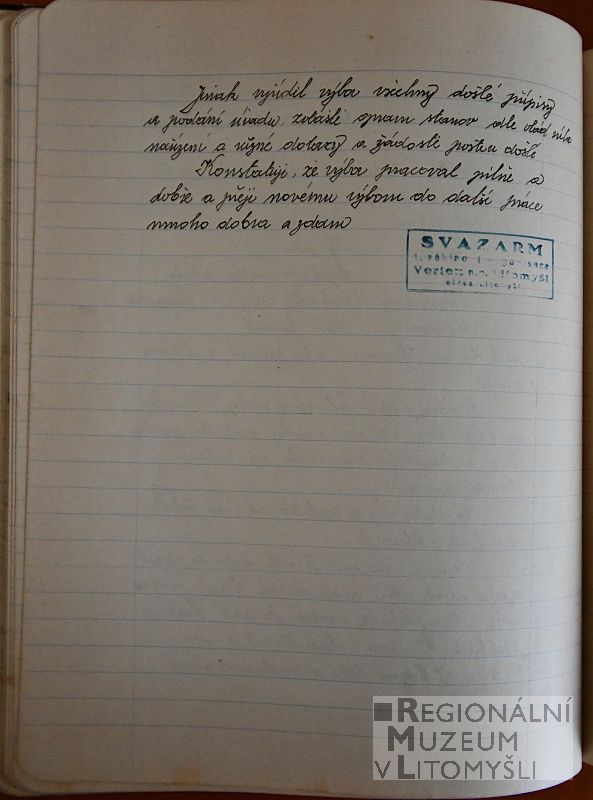 Jinak vyřídil výbor všechny došlé přípisy
a podání úřadu, zvláště stanov dle vlád.
nařízení a různé dotazy a žádosti poštou došlé.
Konstatuji, že výbor pracoval pilně a
dobře a přeji novému výboru do další práce
mnoho dobra a zdaru
SVAZARM
základní organisace
Vertex n.p. Litomyšl
okres Litomyšl
REGIONÁLNÍ
MUZEUM
V LITOMYŠLI